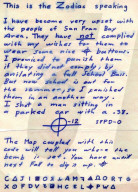 This is the Zodiac speaking
I have become very upset with
the people of San Fran Bay
Area. They have not complied
with my wishes for them to
wear some nice ⊕ buttons.
I promised to punish them
if they did not comply, by
anilating a full School Buss.
But now school is out for
the summer, so I punished
them in an another way.
I shot a man sitting in
a parked car with a .38.
⊕-12 SFPD-0
The Map coupled with this
code will tell you where the
bomb is set. You have untill
next Fall to dig it up. ⊕